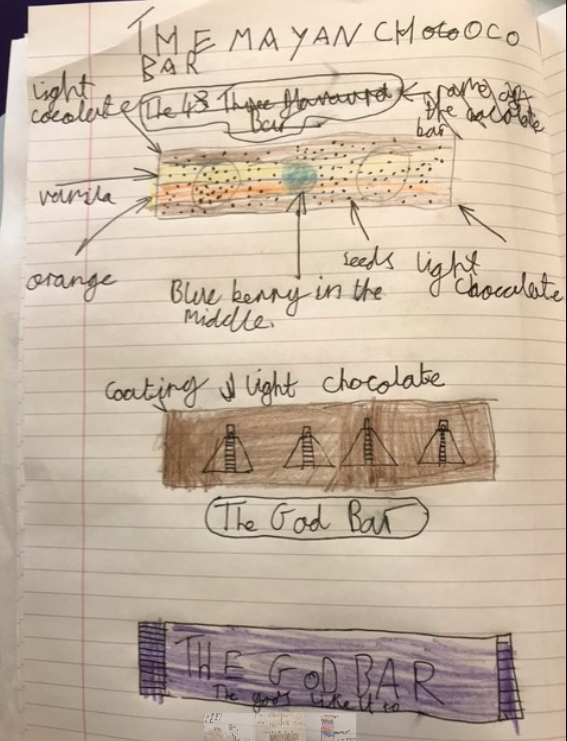 THE MAYAN CHOCO
BAR
light
cocolate
The 4B Three flavourd
Bar
name of
the chocolate
bar
vanila
orange
Blue berry in the
Middle.
seeds
light
Chocculate
Coating light chocolate
The God Bar
THE GOD BAR
The gods like it to